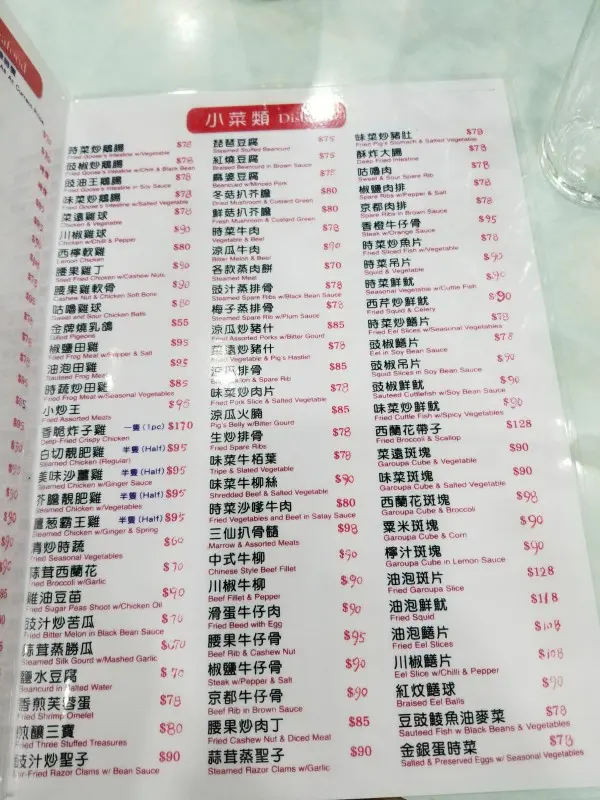 小菜類 Dish
時菜炒鵝腸 $78
Fried Goose's Intestine w/Vegetable
豉椒炒鵝腸 $78
Fried Goose's Intestine w/Chili & Black Bean
豉油王鵝腸 $78
Fried Goose's Intestine in Soy Sauce
味菜炒鵝腸 $78
Fried Goose's Intestine w/Salted Vegetable
菜遠雞球 $78
Chicken & Vegetable
川椒雞球 $90
Chicken w/Chili & Pepper
西檸軟雞 $80
Lemon Chicken
腰果雞丁 $90
Fried Chicken w/Cashew Nuts
腰果雞軟骨 $90
Cashew Nut & Chicken Soft Bone
咕嚕雞球 $80
Sweet and Sour Chicken Balls
金牌燒乳鴿 $55
Grilled Pigeons
椒鹽田雞 $95
Fried Frog Meat w/Pepper & Salt
油泡田雞 $95
Sauteed Frog Meat
時蔬炒田雞 $85
Fried Frog Meat w/Seasonal Vegetables
小炒王 $95
Fried Assorted Meats
香脆炸子雞 一隻 (1pc) $170
Deep-Fried Crispy Chicken
白切靚肥雞 半隻 (Half) $95
Steamed Chicken (Regular)
美味沙薑雞 半隻 (Half) $95
Steamed Chicken w/Ginger Sauce
芥膽靚肥雞 半隻 (Half) $95
Steamed Chicken w/Vegetables
薑葱霸王雞 半隻 (Half) $95
Steamed Chicken w/Ginger & Spring
清炒時蔬 $60
Fried Seasonal Vegetables
蒜茸西蘭花 $70
Fried Broccoli w/Garlic
雞油豆苗 $90
Fried Sugar Peas Shoot w/Chicken Oil
豉汁炒苦瓜 $70
Fried Bitter Melon in Black Bean Sauce
蒜茸蒸勝瓜
Steamed Silk Gourd w/Mashed Garlic
鹽水豆腐 $70
Beancurd in Salted Water
香煎芙蓉蛋 $78
Fried Shrimp Omelet
煎釀三寶 $80
Fried Three Stuffed Treasures
豉汁炒聖子 $90
Stir-Fried Razor Clams w/ Bean Sauce
琵琶豆腐 $75
Steamed Stuffed Beancurd
紅燒豆腐 $75
Braised Beancurd in Brown Sauce
麻婆豆腐 $75
Beancurd w/Minced Pork
冬菇扒芥膽 $80
Dried Mushroom & Custard Green
鮮菇扒芥膽 $80
Fresh Mushroom & Custard Green
時菜牛肉 $78
Vegetable & Beef
涼瓜牛肉 $90
Bitter Melon & Beef
各款蒸肉餅 $70
Steamed Meat
豉汁蒸排骨 $78
Steamed Spare Ribs w/Black Bean Sauce
梅子蒸排骨 $78
Steamed Spare Rib w/Plum Sauce
涼瓜炒豬什 $85
Fried Assorted Porks w/Bitter Gourd
菜遠炒豬什 $78
Fried Vegetable & Pig's Haslet
涼瓜排骨 $85
Melon & Spare Rib
味菜炒肉片 $78
Fried Pork Slice & Salted Vegetable
涼瓜火腩 $85
Pig's Belly w/Bitter Gourd
生炒排骨 $78
Fried Spare Ribs
味菜牛栢葉 $78
Tripe & Slated Vegetable
味菜牛柳絲 $90
Shredded Beef & Salted Vegetable
時菜沙嗲牛肉 $80
Fried Vegetables and Beef in Satay Sauce
三仙扒骨髓 $98
Marrow & Assorted Meats
中式牛柳 $90
Chinese Style Beef Fillet
川椒牛柳 $90
Beef Fillet & Pepper
滑蛋牛仔肉 $90
Fried Beed with Egg
腰果牛仔骨 $95
Beef Rib & Cashew Nut
椒鹽牛仔骨 $90
Steak w/Pepper & Salt
京都牛仔骨 $90
Beef Rib in Brown Sauce
腰果炒肉丁 $85
Fried Cashew Nut & Diced Meat
蒜茸蒸聖子 $90
Steamed Razor Clams w/Garlic
味菜炒豬肚 $78
Fried Pig's Stomach & Salted Vegetable
酥炸大腸 $78
Deep Fried Intestine
咕嚕肉 $78
Sweet & Sour Spare Rib
椒鹽肉排 $78
Spare Ribs w/Pepper & Salt
京都肉排 $78
Spare Ribs in Brown Sauce
香橙牛仔骨 $95
Steak w/Orange Sauce
時菜炒魚片 $78
Fried Sliced Fish w/Vegetable
時菜吊片 $90
Squid & Vegetable
時菜鮮魷 $90
Seasonal Vegetable w/Cuttle Fish
西芹炒鮮魷 $90
Fried Squid & Celery
時菜炒鱔片 $78
Fried Eel Slices w/Seasonal Vegetables
豉椒鱔片 $78
Eel in Soy Bean Sauce
豉椒吊片 $90
Squid Slices in Soy Bean Sauce
豉椒鮮魷 $90
Sauteed Cuttlefish w/Soy Bean Sauce
味菜炒鮮魷 $90
Fried Cuttle Fish w/Spicy Vegetables
西蘭花帶子 $128
Fried Broccoli & Scallop
菜遠斑塊 $90
Garoupa Cube & Vegetable
味菜斑塊 $90
Garoupa Cube & Salted Vegetable
西蘭花斑塊 $98
Garoupa Cube & Broccoli
粟米斑塊 $90
Garoupa Cube & Corn
檸汁斑塊 $90
Garoupa Cube in Lemon Sauce
油泡斑片 $128
Fried Garoupa Slice
油泡鮮魷 $118
Fried Squid
油泡鱔片 $108
Fried Eel Slices
川椒鱔片 $108
Eel Slice w/Chilli & Pepper
紅炆鱔球 $90
Braised Eel Balls
豆豉鯪魚油麥菜 $78
Sauteed Fish w Black Beans & Vegetables
金銀蛋時菜 $78
Salted & Preserved Eggs w/ Seasonal Vegetables